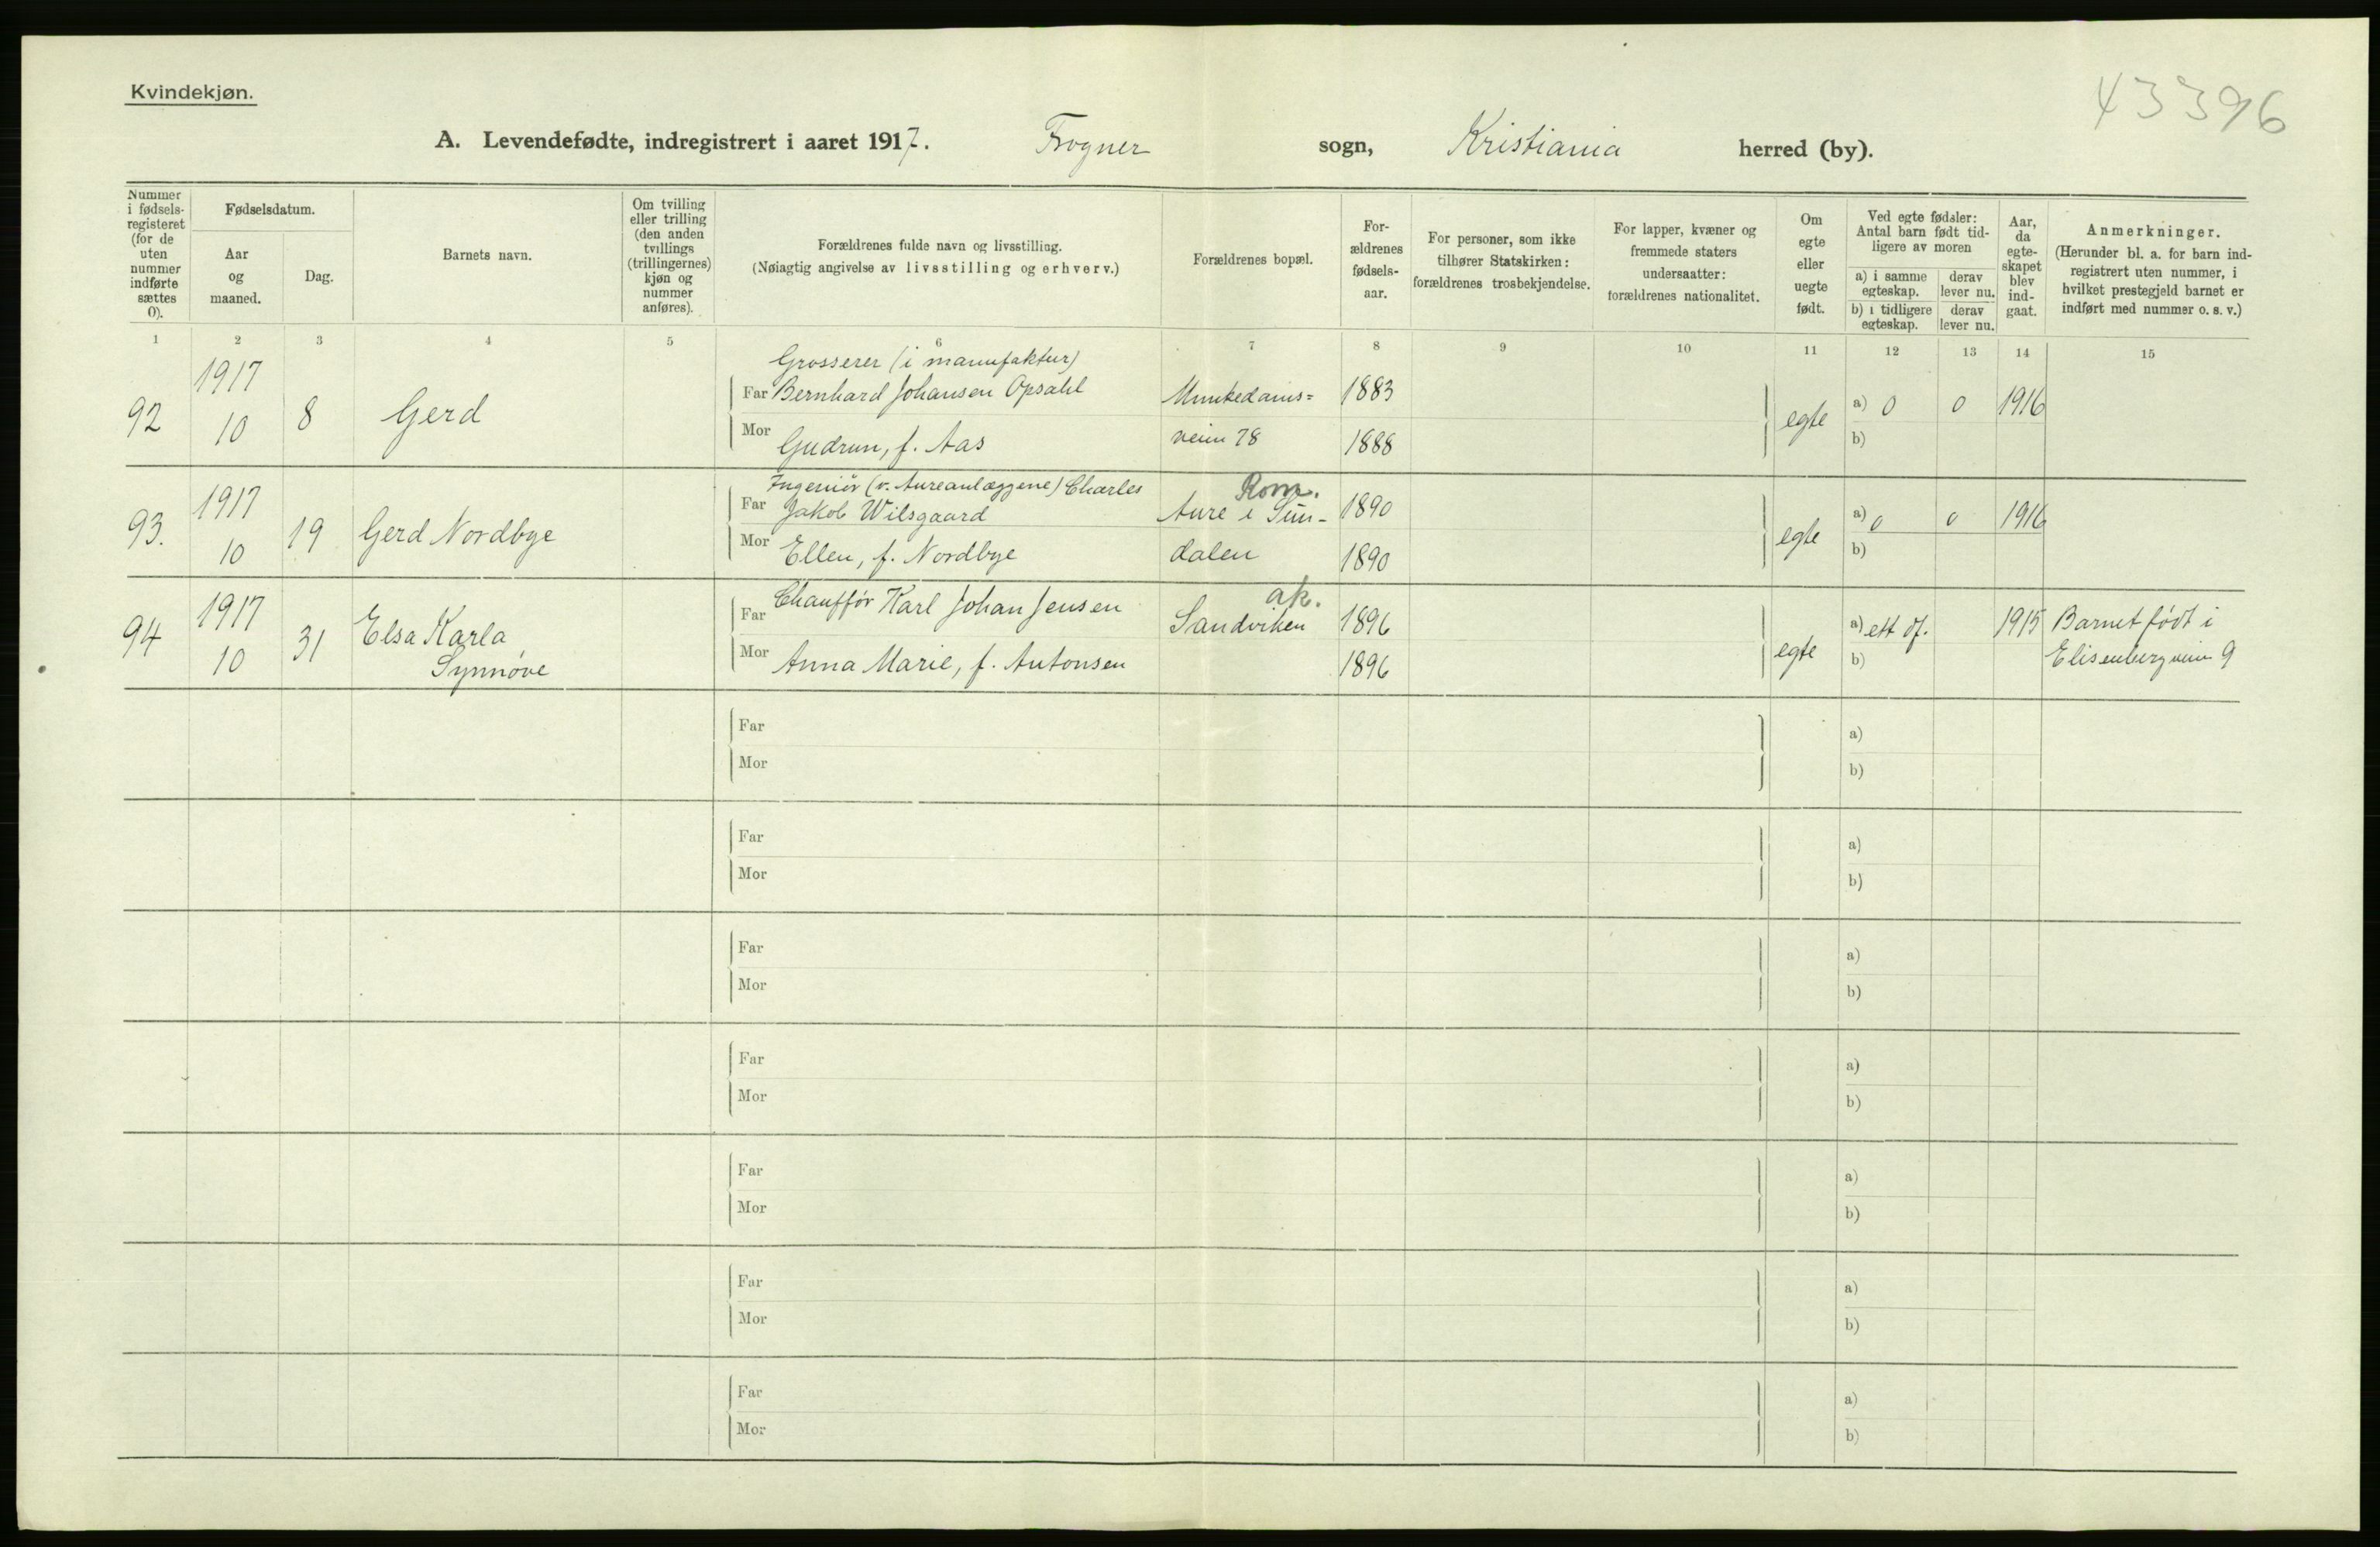 Kvindekjøn.
43396
A. Levendefødte, indregistrert i aaret 1917. Frogner sogn, Kristiania herred (by).
Nummer i fødsels-registeret (for de uten nummer indførte sættes 0).
Fødselsdatum.
Aar og maaned.
Dag.
Barnets navn.
Om tvilling eller trilling (den anden tvillings (trillingernes) kjøn og nummer anføres).
Forældrenes fulde navn og livsstilling.
(Nøiagtig angivelse av livsstilling og erhverv.)
Forældrenes bopæl.
For-ældrenes fødsels-aar.
For personer, som ikke tilhører Statskirken: forældrenes trosbekjendelse.
For lapper, kvæner og fremmede staters undersaatter: forældrenes nationalitet.
Om egte eller uegte født.
Ved egte fødsler: Antal barn født tid-ligere av moren
a) i samme egteskap. derav lever nu.
b) i tidligere egteskap. derav lever nu.
Aar, da egte-skapet blev ind-gaat.
Anmerkninger.
(Herunder bl. a. for barn ind-registrert uten nummer, i hvilket prestegjeld barnet er indført med nummer o. s. v.)
1 2 3 4 5 6 7 8 9 10 11 12 13 14 15
92 1917 10 8 Gerd
Grosserer (i manufaktur)
Far Bernhard Johansen Opsahl Munkedams= 1883
Mor Gudrun, f. Aas veien 78 1888
egte a) 0 0 1916
b)
93. 1917 10 19 Gerd Nordbye
Ingeniör (v. Aureanlæggene) Charles
Far Jakob Wilsgaard Rom. Aure i Sun- 1890
Mor Ellen, f. Nordbye dalen 1890
egte a) 0 0 1916
b)
94 1917 10 31 Elsa Karla
Synnøve
Far Chauffør Karl Johan Jensen ak. Sandviken 1896
Mor Anna Marie, f. Antonsen 1896
egte a) ett df. 1915 Barnet født i
b) Elisenbergveien 9
Far a)
Mor b)
Far a)
Mor b)
Far a)
Mor b)
Far a)
Mor b)
Far a)
Mor b)
Far a)
Mor b)
Far a)
Mor b)